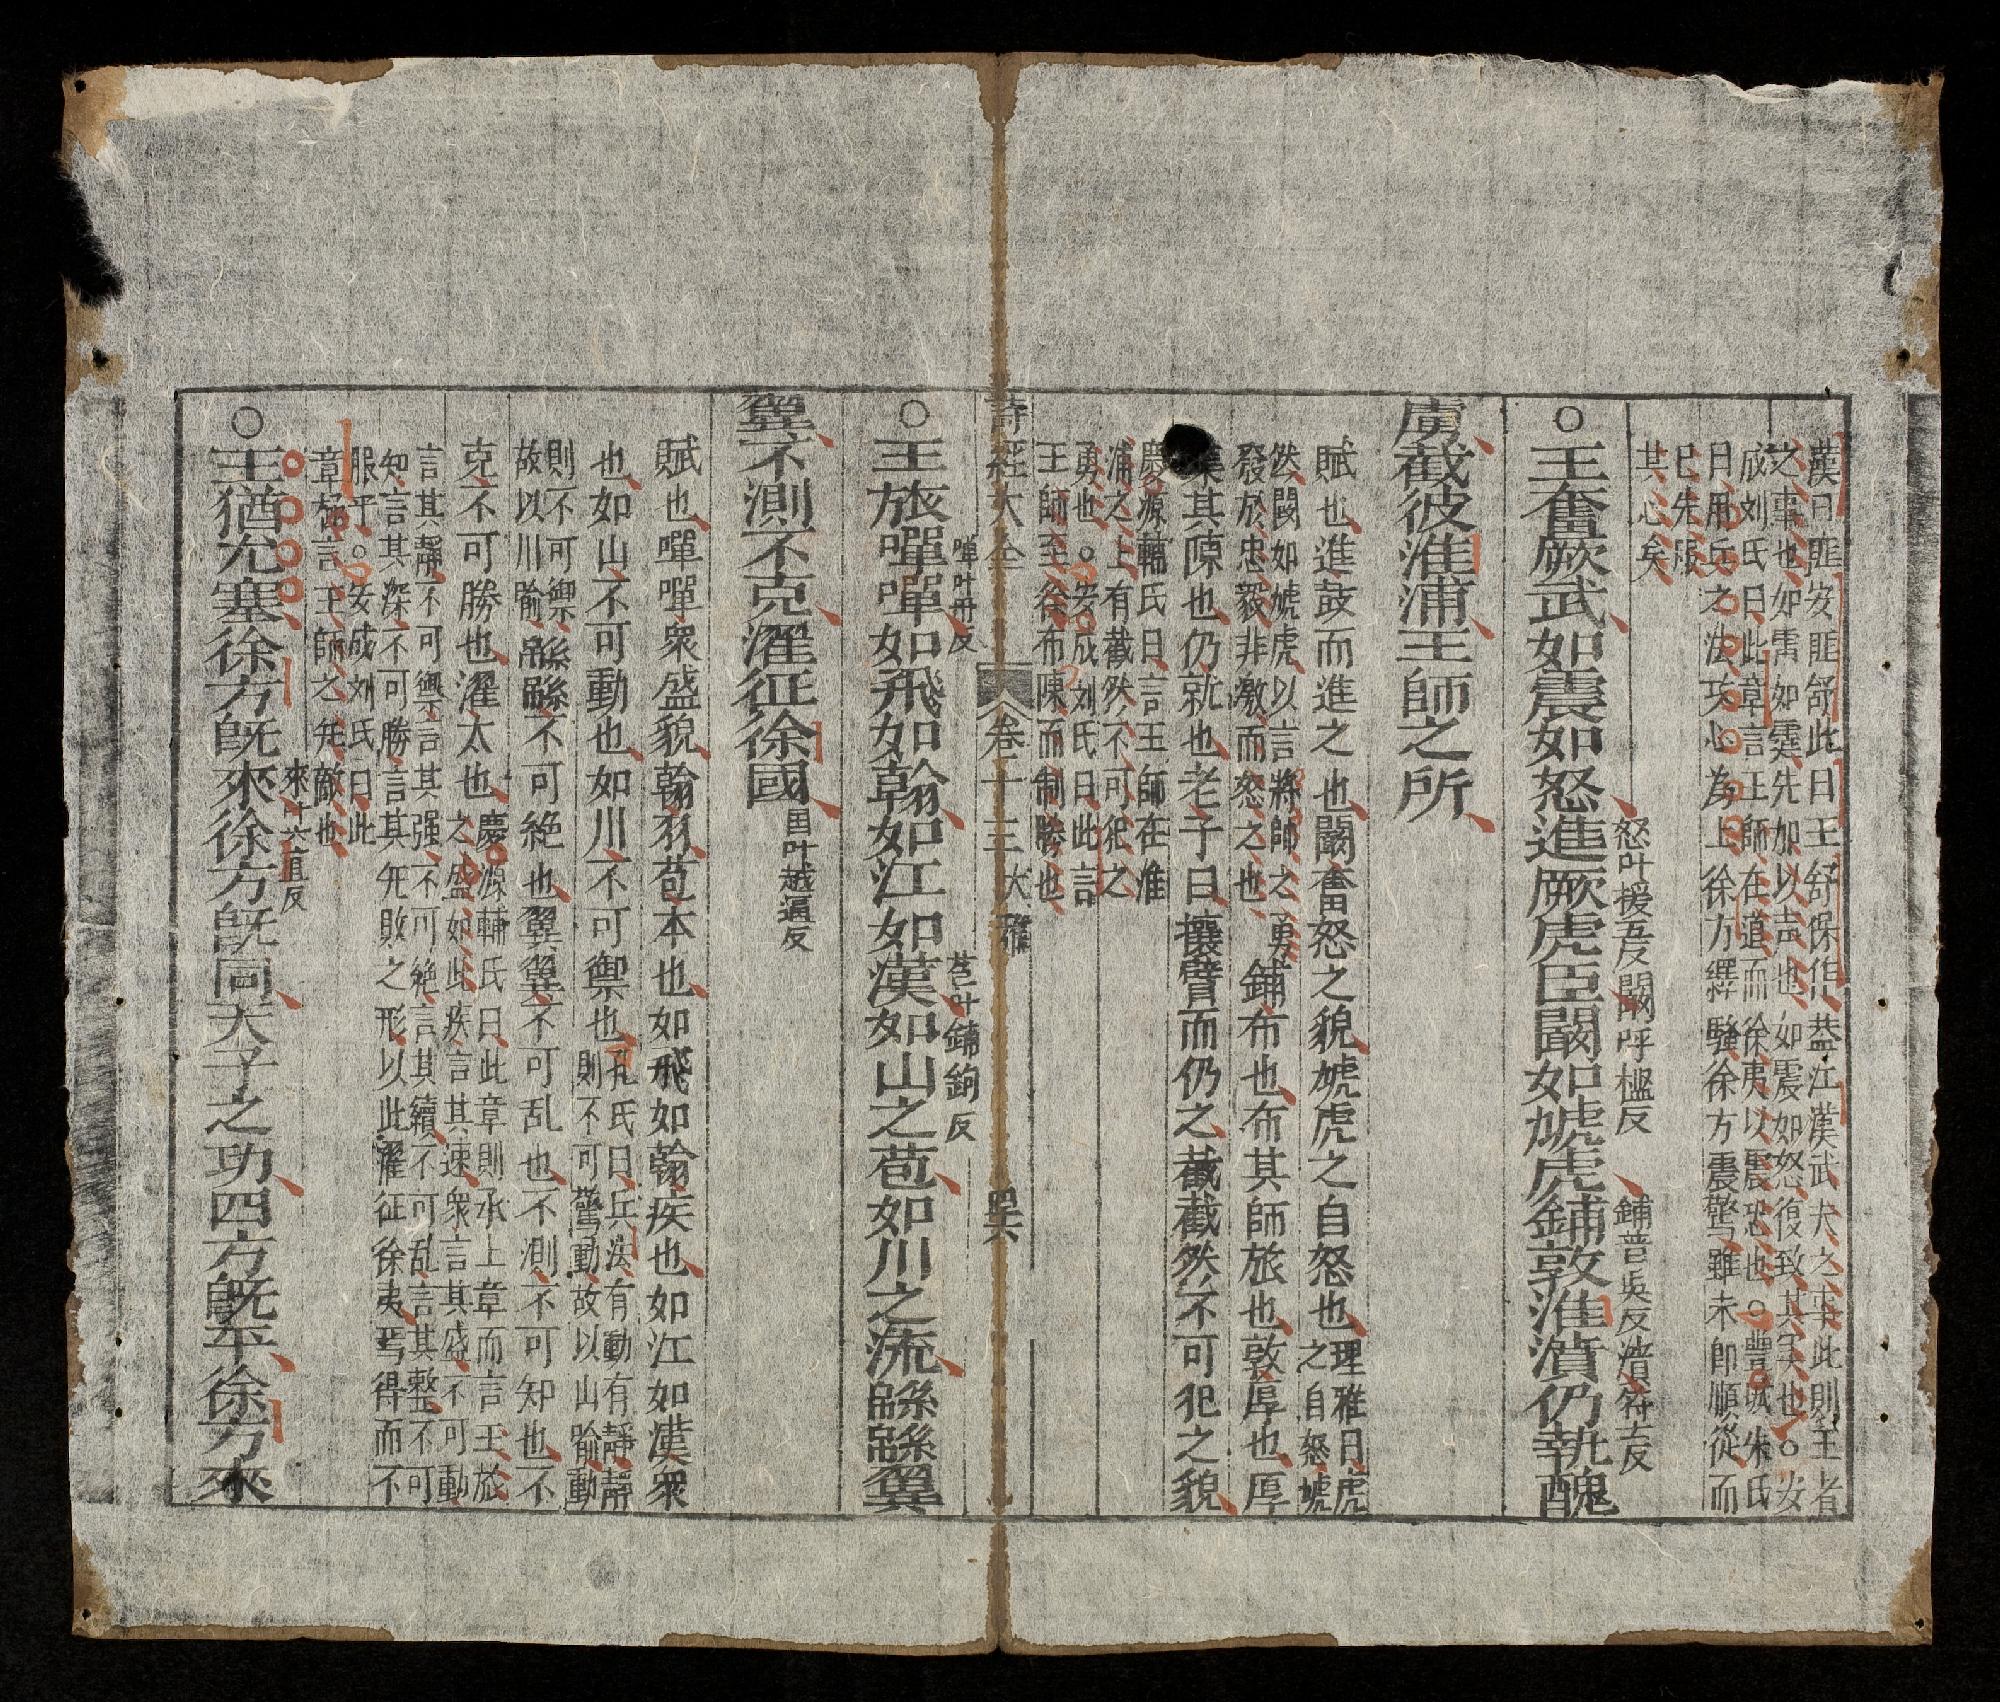 漢曰匪安匪舒此曰王舒保作蓋江漢武夫之事此則王者
之事也如雷如霆先加以言也如震如怒復致其㒵也○安
成刘氏曰此章言王師在道而徐夷以震恐也○豐城朱氏
曰用兵之法攻心為上徐方繹騷徐方震驚雖未即順從而
已先服
其心矣
○王奮厥武如震如怒進厥虎臣闞如虓虎鋪敦淮濆仍執醜
怒叶援五反闞呼檻反 鋪普吳反濆符云反
虜截彼淮浦王師之所
賦也進鼓而進之也闞奮怒之貌虓虎之自怒也埋雅曰虎之自怒虓
然闞如虓虎以言將師之勇
發於忠毅非激而怒之也 鋪布也布其師旅也敦厚也厚
集其陳也仍就也老子曰攘臂而仍之截截然不可犯之貌
慶源輔氏曰言王師在淮
浦之上有截然不可犯之
勇也○安成刘氏曰此言
王師至徐布陳而制勝也
詩經大全 卷十三 大雅 四十六
○王旅嘽嘽如飛如翰如江如漢如山之苞如川之流綿綿翼
嘽叶丹反 苞叶鋪鉤反
翼不測不克濯征徐國
国叶越逼反
賦也嘽嘽衆盛貌翰羽苞本也如飛如翰疾也如江如漢衆
也如山不可動也如川不可禦也孔氏曰兵法有動有靜靜
則不可驚動故以山喻動
則不可禦
故以川喻綿綿不可絶也翼翼不可乱也不測不可知也不
克不可勝也濯大也慶源輔氏曰此章則承上章而言王旅
之盛如此疾言其速衆言其盛不可動
言其靜不可禦言其强不可絶言其續不可乱言其整不可
知言其深不可勝言其旡敗之形以此濯征徐夷焉得而不
服乎○安成刘氏曰此
章極言王師之旡敵也
來叶六直反
○王猶允塞徐方旣來徐方旣同天子之功四方旣平徐方來